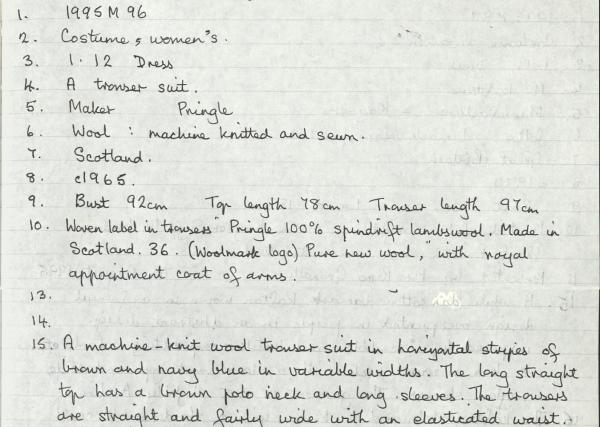 1. 1995 M 96
2. Costume, women's.
3. 1.12 Dress
4. A trouser suit.
5. Maker Pringle
6. Wool : machine knitted and sewn.
7. Scotland.
8. c1965.
9. Bust 92cm Top length 78cm Trouser length 97cm
10. Woven label in trousers "Pringle 100% spindrift lambswool. Made in
Scotland. 36. (Woolmark logo) Pure new wool," with royal
appointment coat of arms.
13.
14.
15. A machine-knit wool trouser suit in horizontal stripes of
brown and navy blue in variable widths. The long straight
top has a brown polo neck and long sleeves. The trousers
are straight and fairly wide with an elasticated waist.